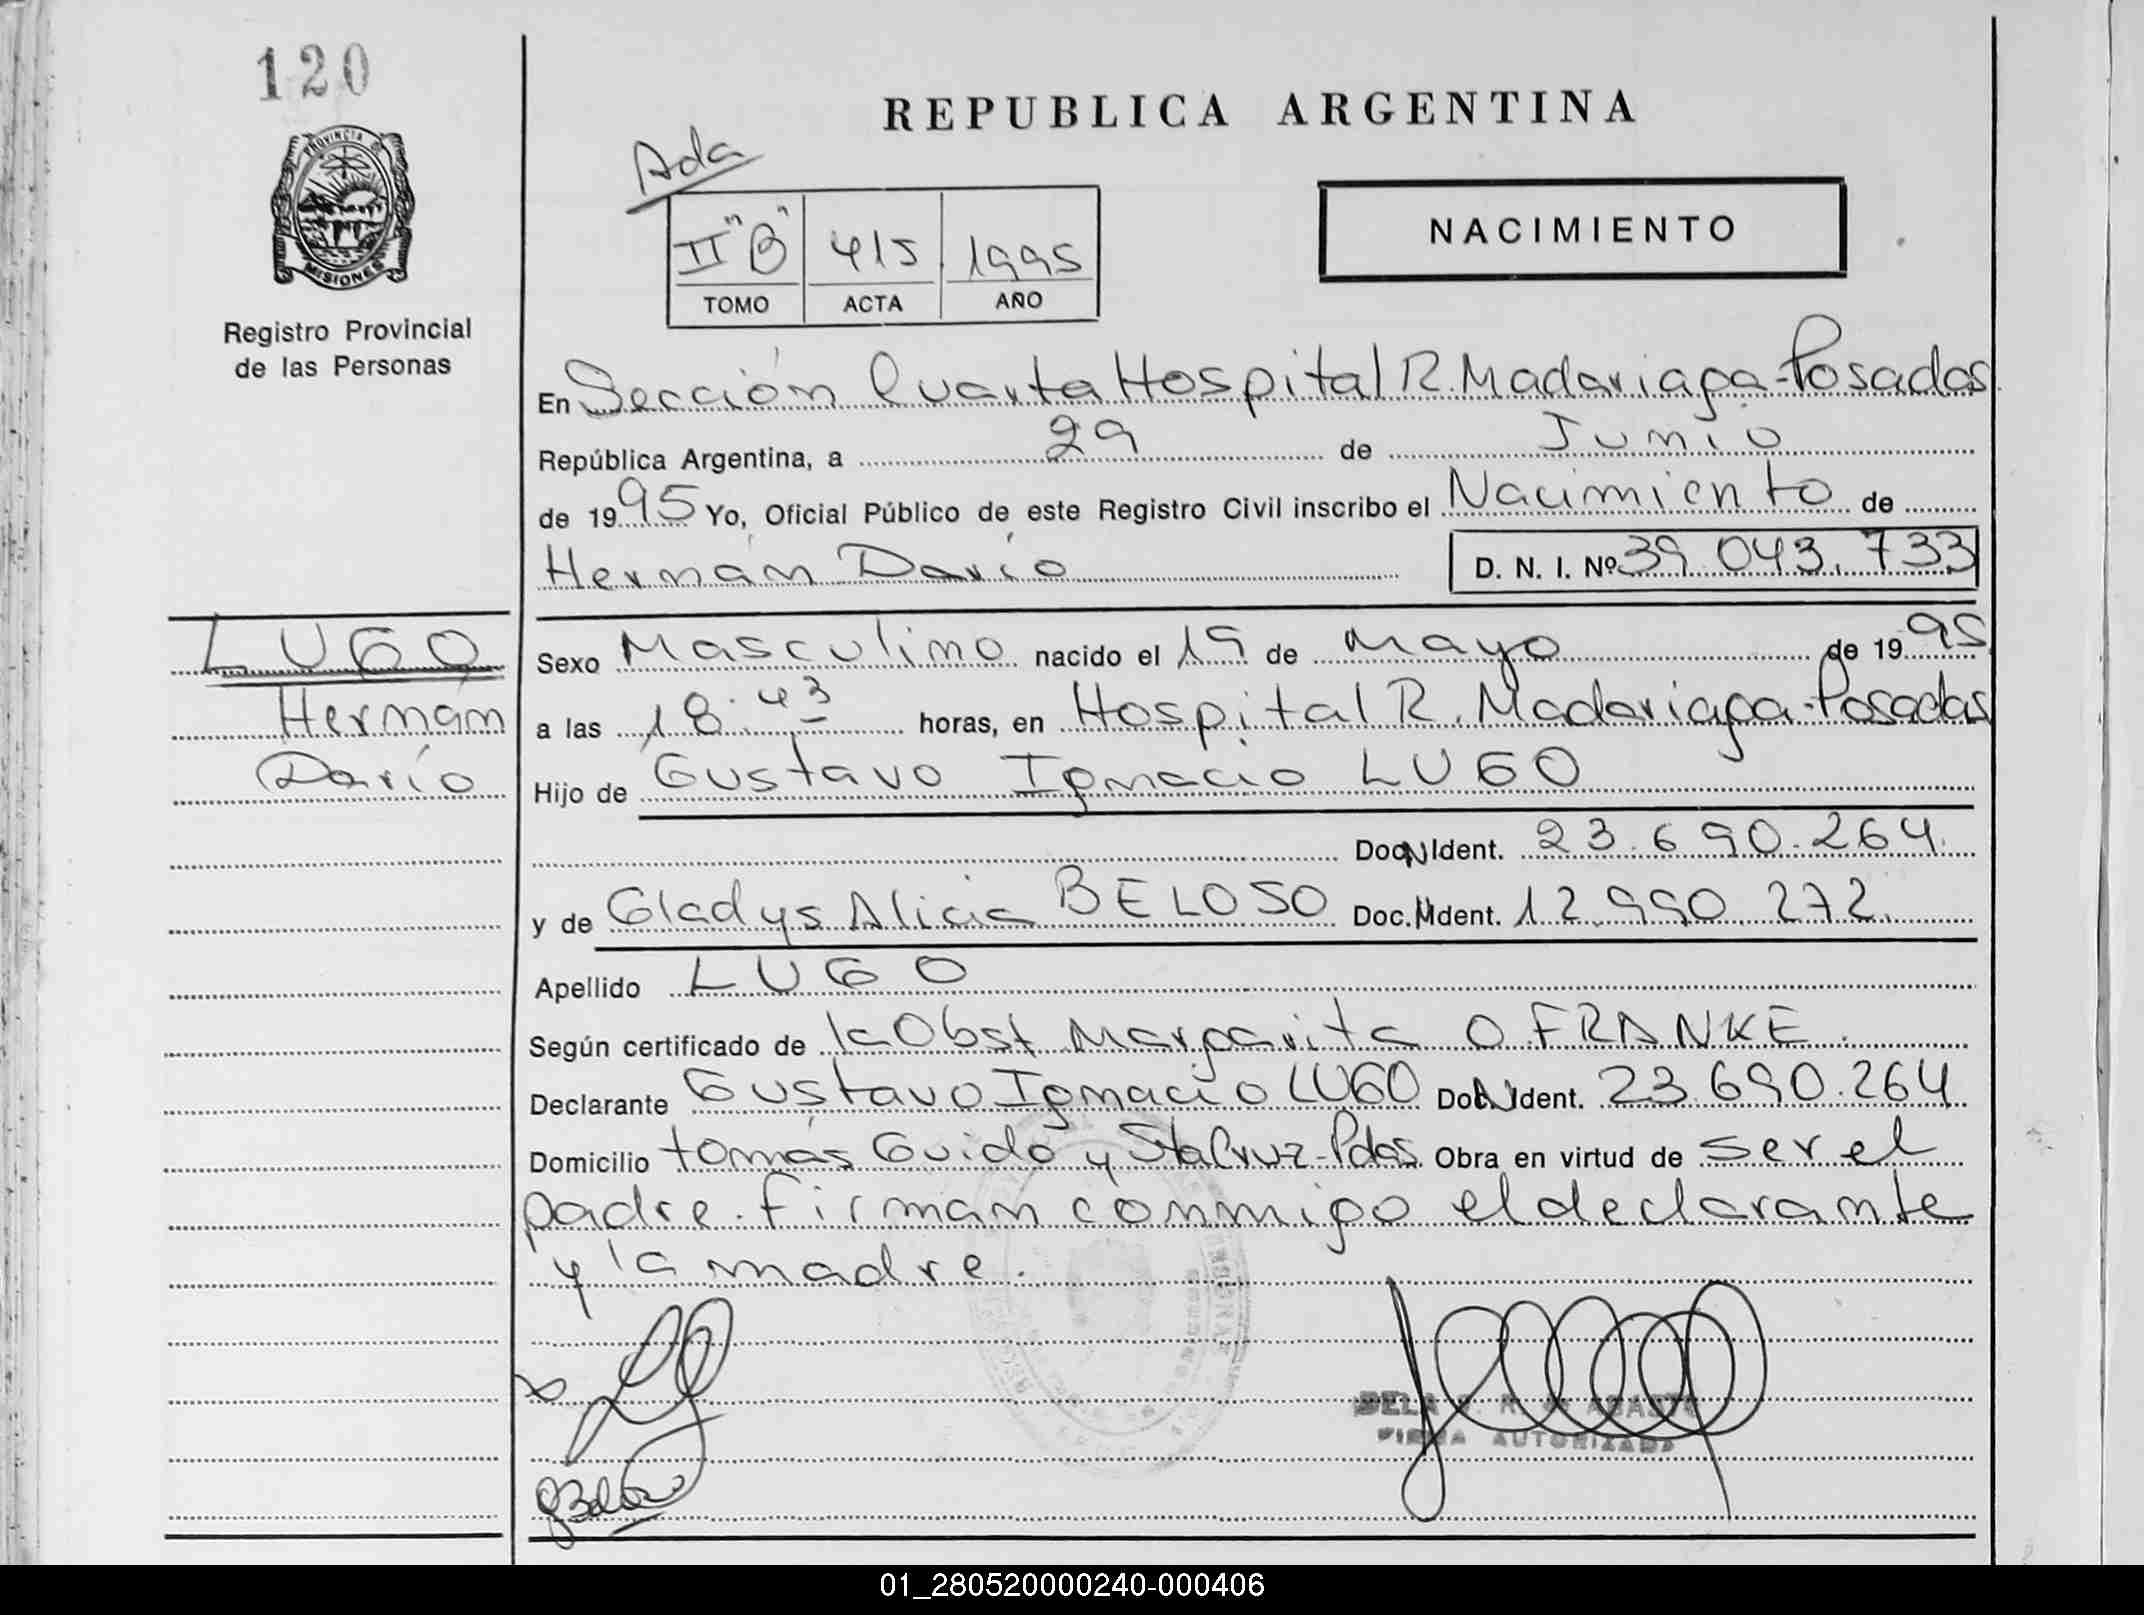 120
PROVINCIA DE
MISIONES
Registro Provincial
de las Personas
REPUBLICA ARGENTINA
Ada
NACIMIENTO
II "B" 415 1995
TOMO ACTA AÑO
En Sección Cuarta Hospital R. Madariaga-Posadas
República Argentina, a 29 de Junio
de 1995 Yo, Oficial Público de este Registro Civil inscribo el Nacimiento de
Hernán Darío D. N. I. Nº 39.043.733
LUGO
Hernán
Darío
Sexo Masculino nacido el 19 de Mayo de 1995
a las 18:43 horas, en Hospital R. Madariaga-Posadas
Hijo de Gustavo Ignacio LUGO
Doc. N Ident. 23.690.264
y de Gladys Alicia BELOSO Doc. N Ident. 12.990.272.
Apellido LUGO
Según certificado de la Obst Margarita O. FRANKE.
Declarante Gustavo Ignacio LUGO Doc. N Ident. 23.690.264
Domicilio tomás Guido y Sta Cruz-Pdas. Obra en virtud de ser el
padre. firman conmigo el declarante
y la madre.
FIRMA AUTORIZADA
01_280520000240-000406